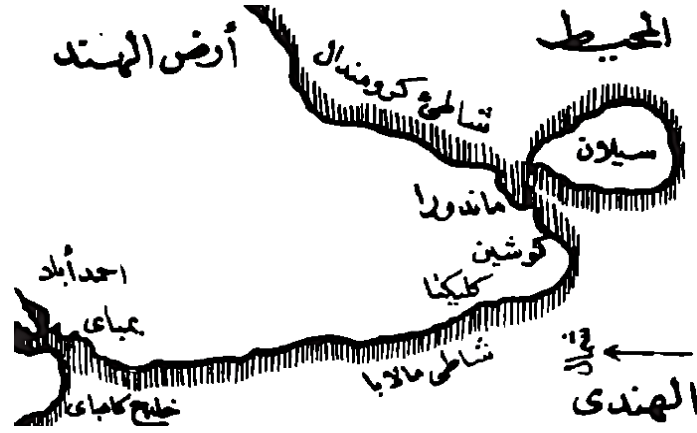 المحيط
أرض الهند
شاطئ كرومندال
سيلان
ماندورا
كوشين
كليكتا
احمد أباد
بمباى
شاطى مالابا
خليج كامباى
شمال
الهندى